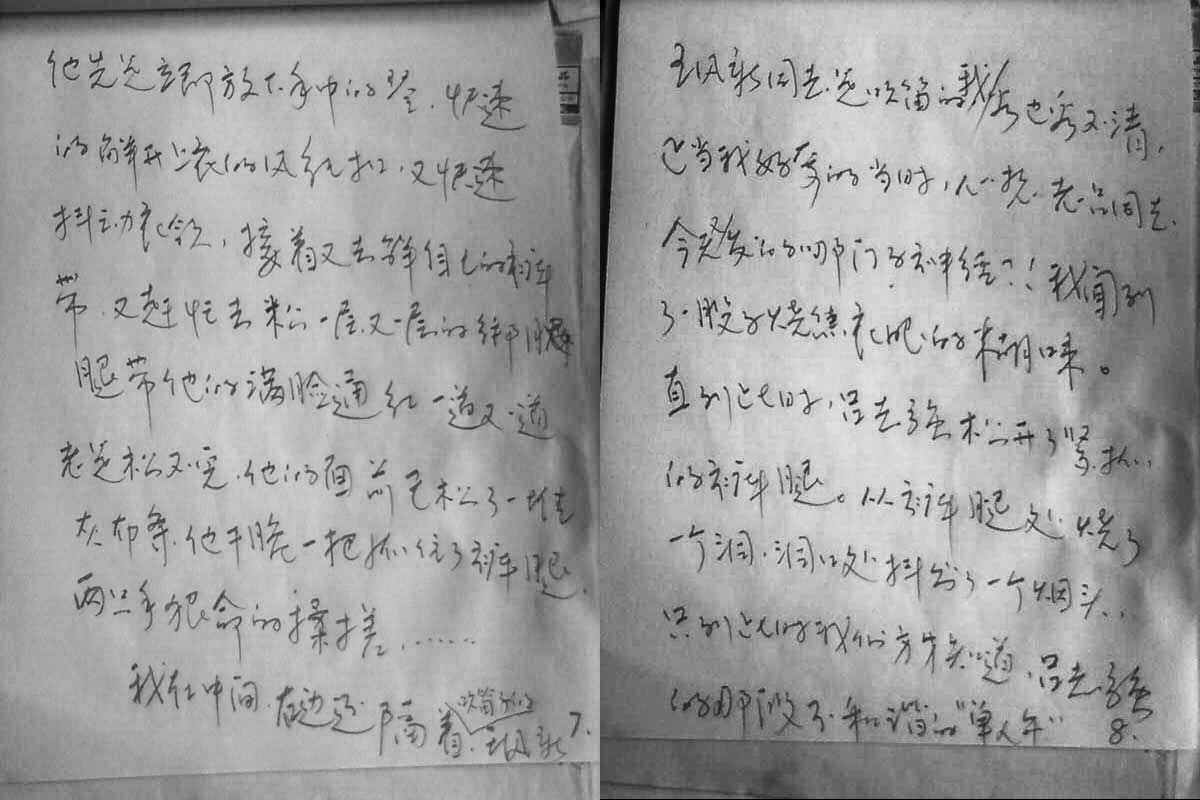 他先是立即放下手中的琴.快速
的解开上衣的风纪扣,又快速
抖动衣领,接着又去解自己的裤
带.又赶忙去松一层又一层的绑腿
腿带他的满脸通红一道又一道
老是松不完.他的面前已松了一堆
灰布条.他干脆一把抓住了裤腿.
两只手狠命的揉搓.......
我在中间.右边还隔着.吹笛子的王风新
7.
王风新同志.是吹笛的我看也看不清,
正当我好奇的当时,心想.老吕同志.
今天发的哪门子神经?!我闻到
了一股子烧焦衣服的糊味。
直到这时,吕志强松开了紧抓
的裤腿。从裤腿处烧了
一个洞.洞口处抖出了一个烟头..
只到这时我们方才知道.吕志强
的那段不和谐的"单人舞"
8.